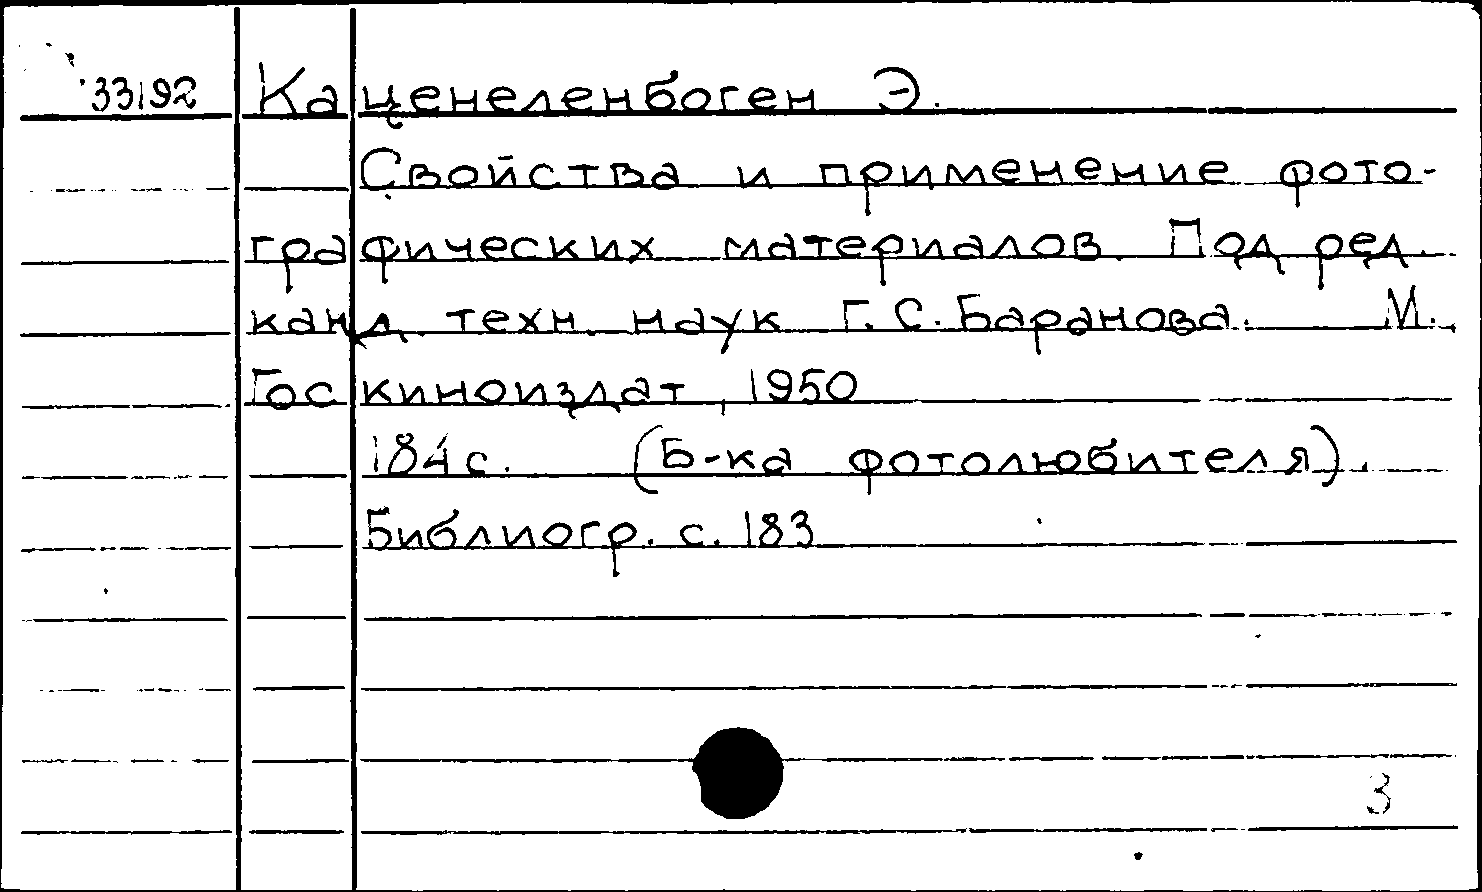 33192 Каценеленбоген Э.
Свойства и применение фото-
графических материалов. Под ред.
канд. техн. наук Г.С. Баранова. М.,
Госкиноиздат, 1950
184с. (Б-ка фотолюбителя).
Библиогр. с. 183
3